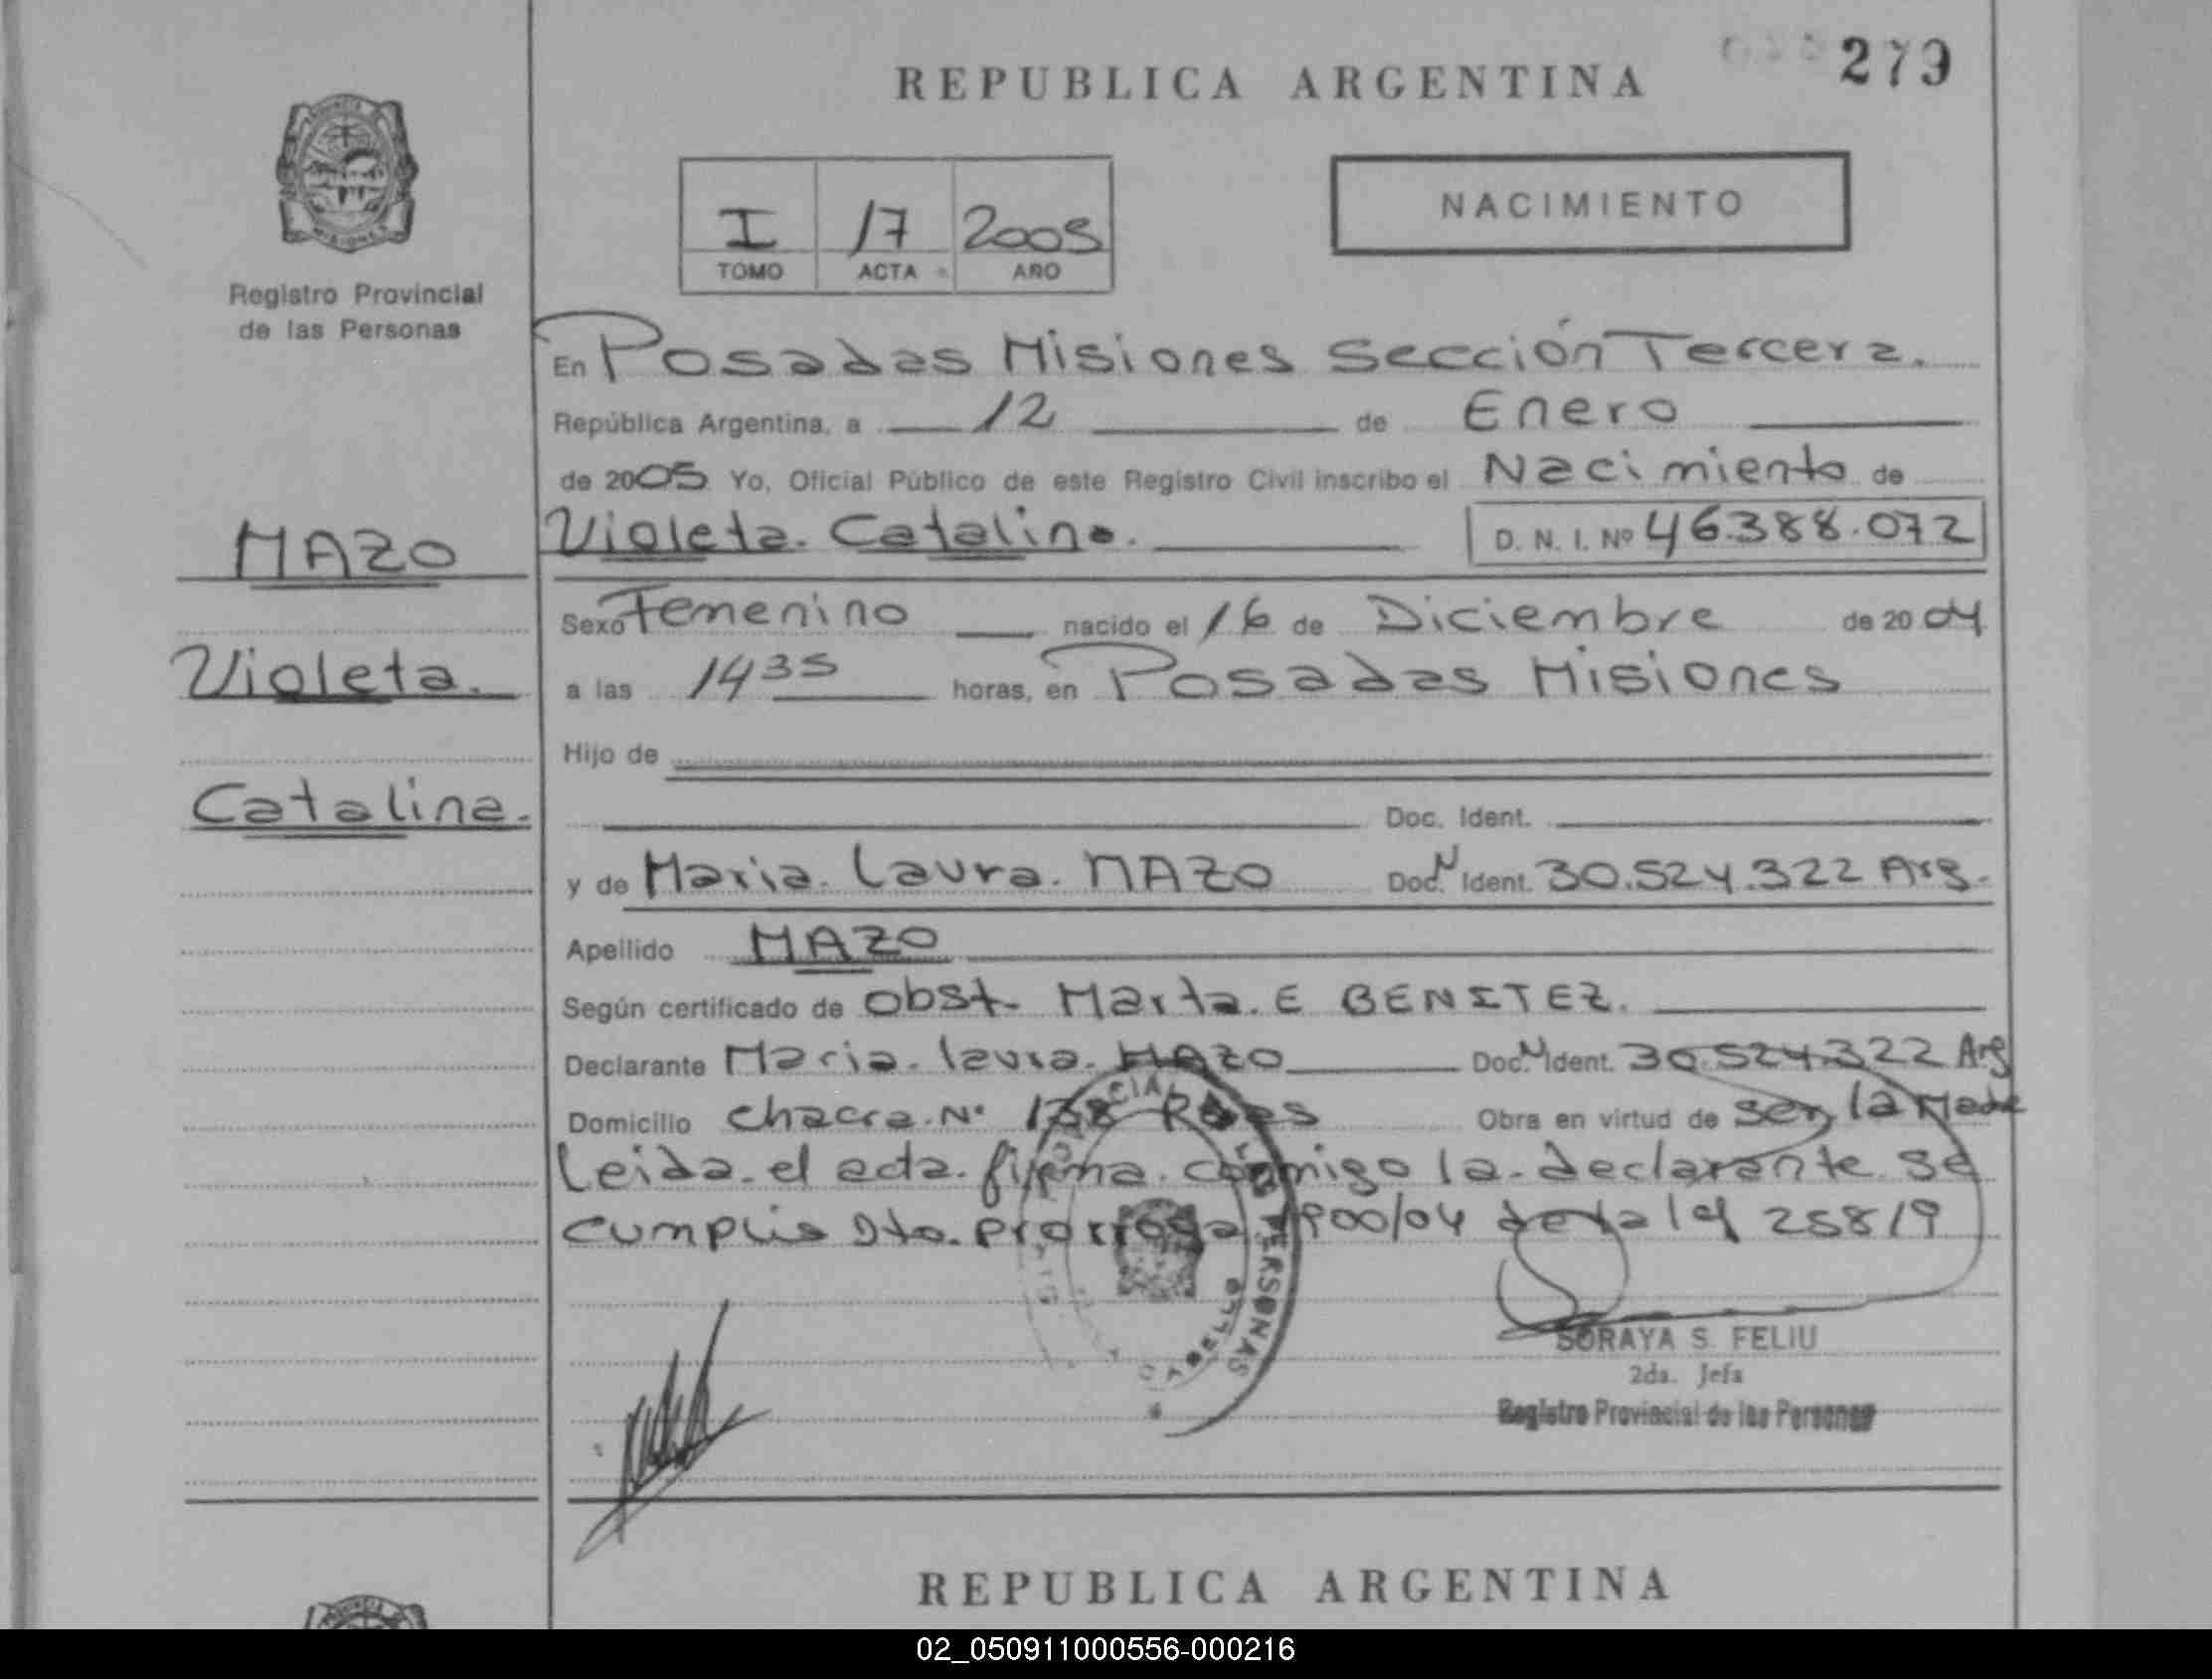 REPUBLICA ARGENTINA
279
I 17 2005
TOMO ACTA AÑO
NACIMIENTO
Registro Provincial
de las Personas
En Posadas Misiones Sección Tercera.
República Argentina, a 12 de Enero
de 2005 Yo, Oficial Público de este Registro Civil inscribo el Nacimiento de
Violeta Catalina. D. N. I. Nº 46.388.072
MAZO
Violeta
Catalina.
Sexo Femenino nacido el 16 de Diciembre de 2004
a las 14 35 horas, en Posadas Misiones
Hijo de
Doc. Ident.
y de Maria Laura MAZO Doc. N Ident. 30.524.322 Arg.
Apellido MAZO
Según certificado de Obst. Marta E BENITEZ.
Declarante Maria laura MAZO Doc. N Ident. 30.524.322 Arg
Domicilio Chacra Nº Obra en virtud de ser la Madre
Leida el acta firma conmigo la declarante se
cumplio Dto. prorroga 1900/04 de la ley 25819
PERSONAS
SORAYA S. FELIU
2da. Jefa
Registro Provincial de las Personas
REPUBLICA ARGENTINA
02_050911000556-000216